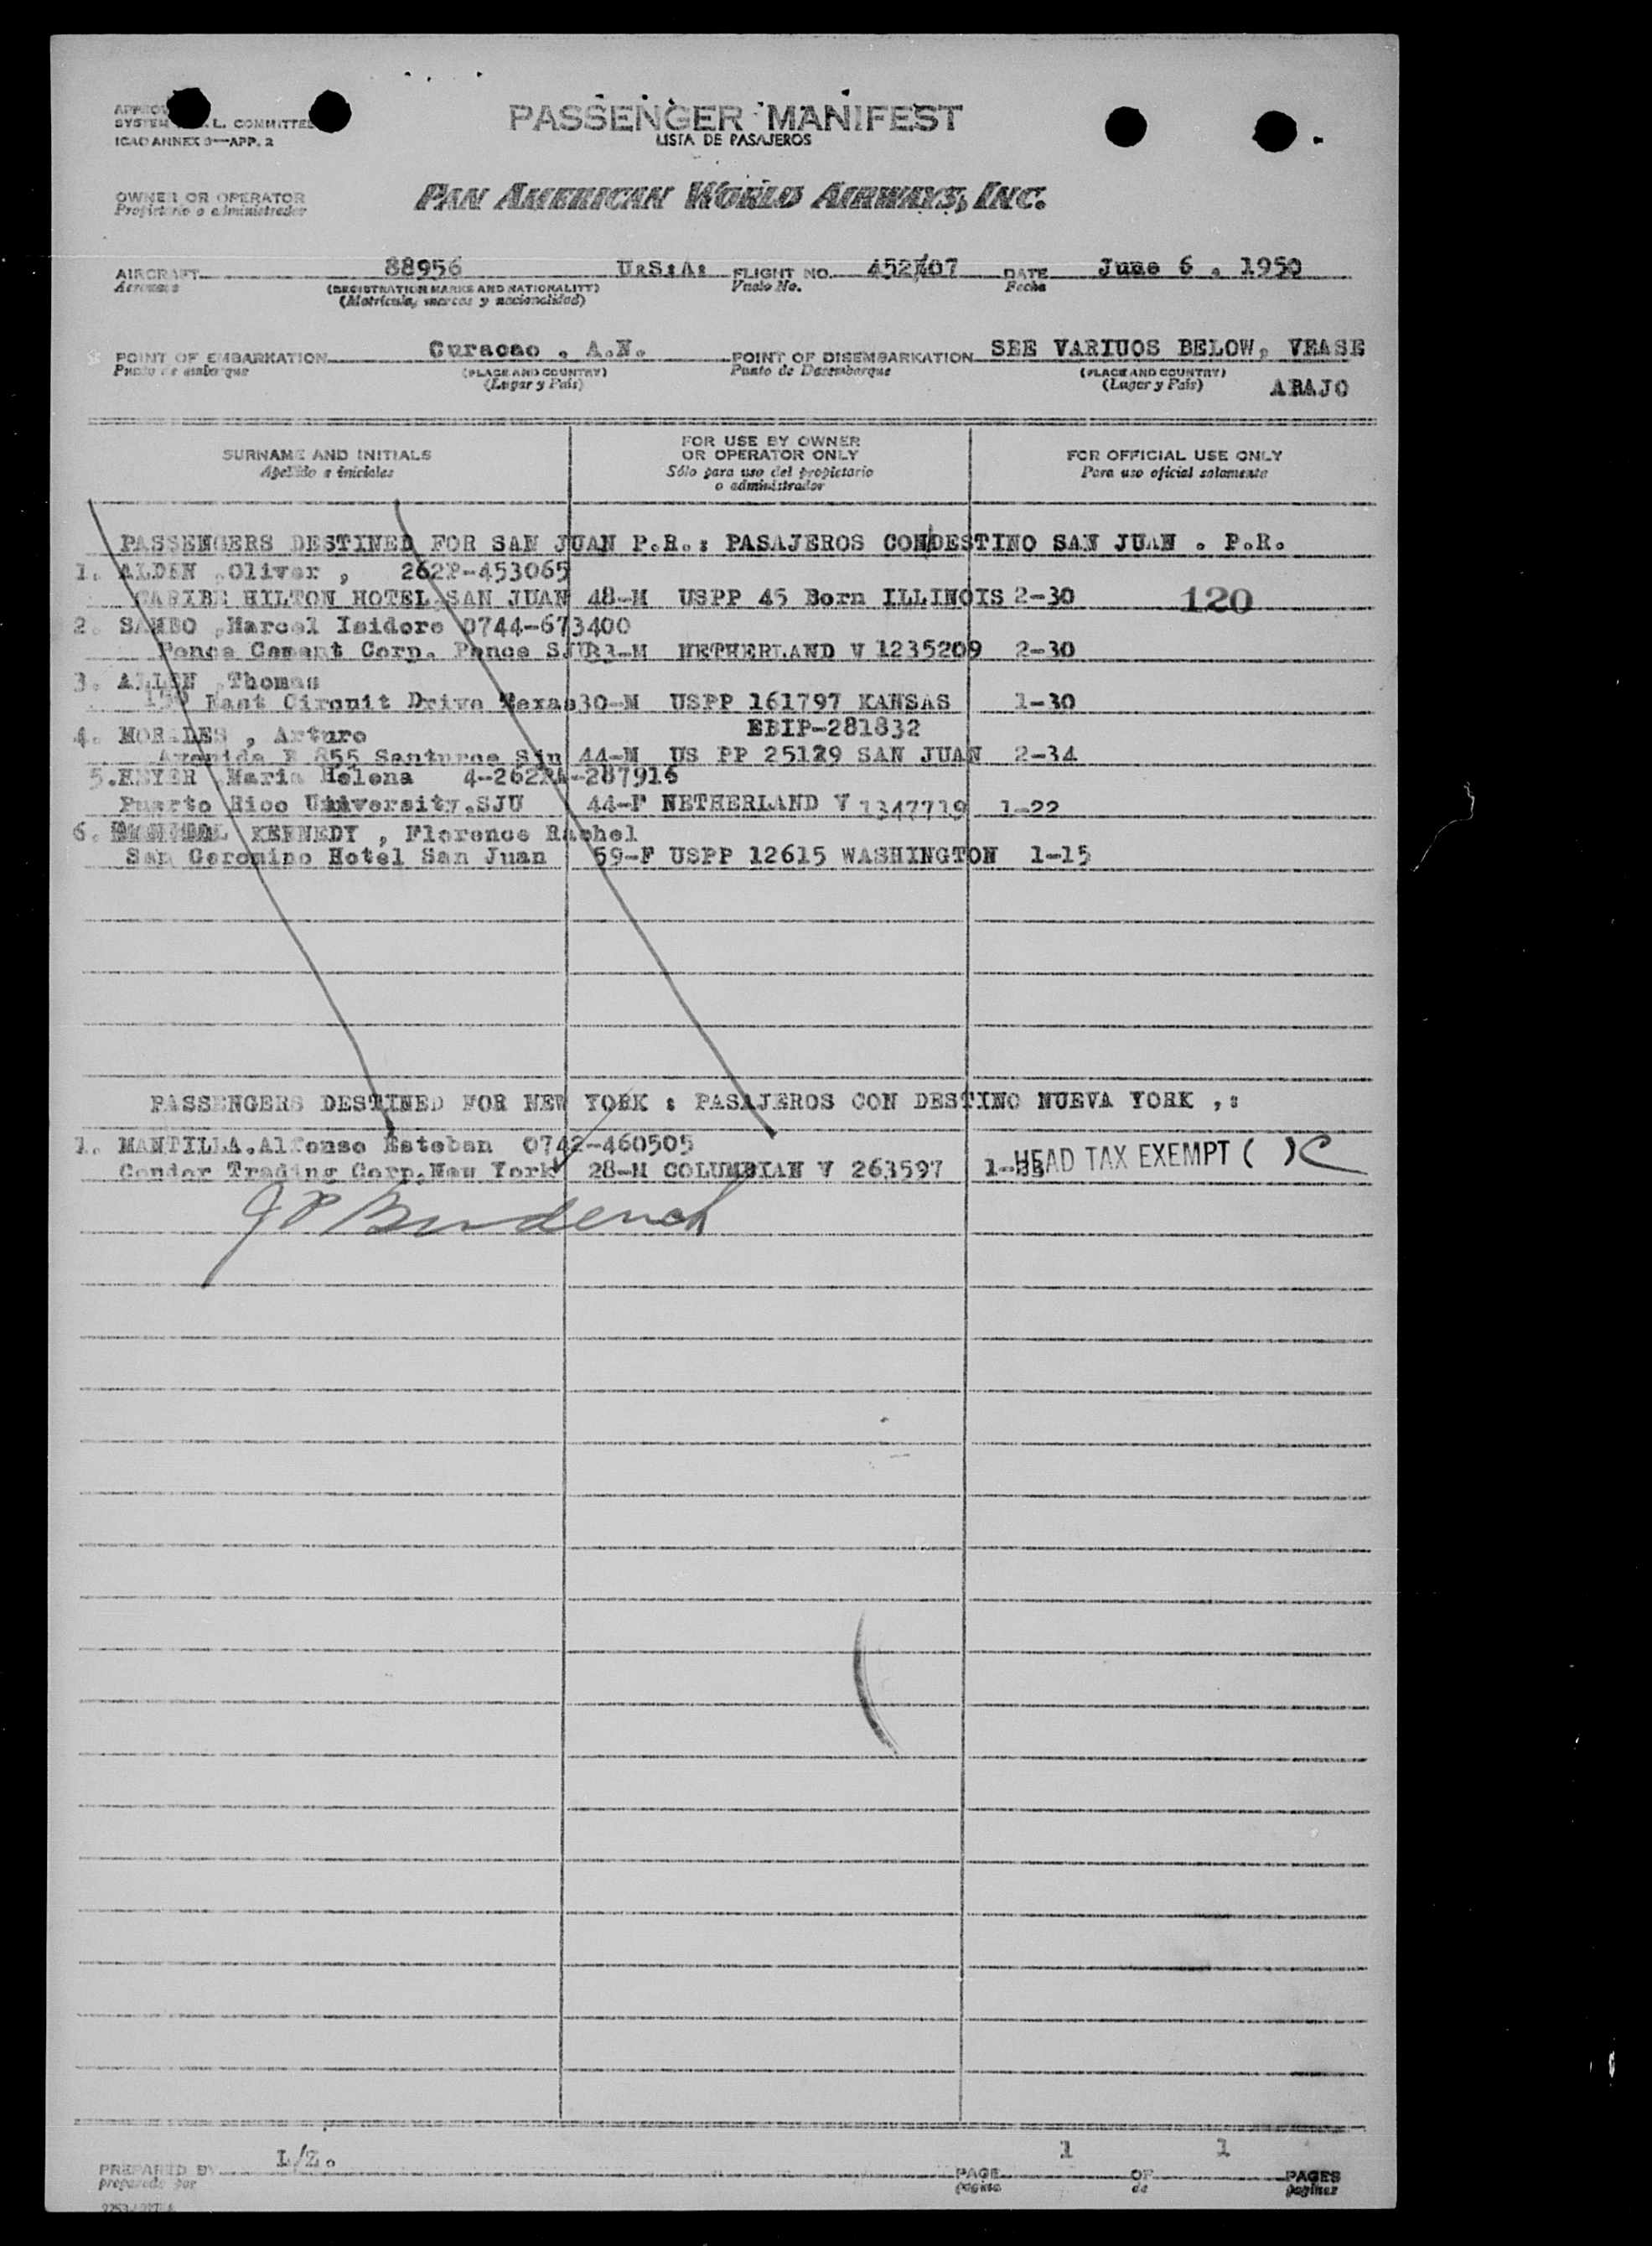 PASSENGER MANIFEST
LISTA DE PASAJEROS
SYSTEM L. COMMITTEE
ICAO ANNEX 9—APP. 2
OWNER OR OPERATOR
Propietario o administrador
PAN AMERICAN WORLD AIRWAYS, INC.
AIRCRAFT 88956 U.S.A. FLIGHT NO. 452/407 DATE June 6 . 1950
Aeronave (REGISTRATION MARKS AND NATIONALITY) Vuelo No. Fecha
(Matrícula, marcas y nacionalidad)
POINT OF EMBARKATION Curacao . A.N. POINT OF DISEMBARKATION SEE VARIUOS BELOW, VEASE
Punto de embarque (PLACE AND COUNTRY) Punto de Desembarque (PLACE AND COUNTRY)
(Lugar y País) (Lugar y País) ABAJO
SURNAME AND INITIALS
Apellido e iniciales
FOR USE BY OWNER
OR OPERATOR ONLY
Sólo para uso del propietario
o administrador
FOR OFFICIAL USE ONLY
Para uso oficial solamente
PASSENGERS DESTINED FOR SAN JUAN P.R.: PASAJEROS CON DESTINO SAN JUAN . P.R.
1. ALDEN ,Oliver , 262P-453065
CARIBE HILTON HOTEL SAN JUAN 48-M USPP 45 Born ILLINOIS 2-30 120
2. SAMBO ,Marcel Isidore 0744-673400
Ponce Cement Corp. Ponce NETHERLAND V 1235209 2-30
3. ALLEN ,Thomas
East Circuit Drive Texas 30-M USPP 161797 KANSAS 1-30
EBIP-281832
4. MORALES , Arturo
Avenida 855 Santurce Sju 44-M US PP 25129 SAN JUAN 2-34
5. Maria Helena
Puerto Rico University.SJU 44-F NETHERLAND V 1347719 1-22
6. KENNEDY , Florence Rachel
San Geronimo Hotel San Juan 59-F USPP 12615 WASHINGTON 1-15
PASSENGERS DESTINED FOR NEW YORK : PASAJEROS CON DESTINO NUEVA YORK ,:
1. MANTILLA.Alfonso Esteban 0742-460505
Condor Trading Corp.New York 28-M COLUMBIAN V 263597 HEAD TAX EXEMPT ( )
PREPARED BY L/Z.
preparado por
PAGE 1 OF 1 PAGES
página de páginas